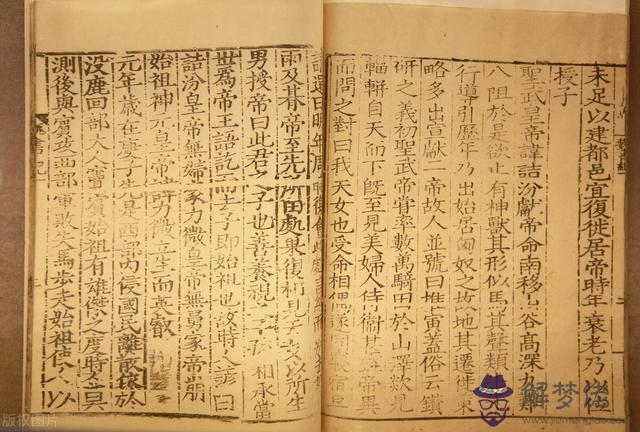 未足以建都邑宜復徙居帝時年衰老乃以位
授子
聖武皇帝諱詰汾獻帝命南移山谷高深
八阻於是欲止有神獸其形似馬其聲類
行導引歷年乃出始居匈奴之故地其遷徙
略多出宣獻二帝故人並號曰推寅蓋俗云鑽
研之義初聖武帝嘗率數萬騎田於山澤欻見
輜軿自天而下既至見美婦人侍衛甚盛帝異
而問之對曰我天女也受命相偶
還曰明年周時復會此處
雨及朞帝至先所田處果復相見天女以所生
男授帝曰此君之子也善養視之子孫相承當
世爲帝王語訖而去子即始祖也故時人諺曰
詰汾皇帝無婦家力微皇帝無舅家帝崩
始祖神元皇帝諱力微立生而英叡
元年歲在庚子先是西部內侵國民離散依於
没鹿回部大人竇賓始祖有雄傑之度時人莫
測後與賓攻西部軍敗失馬步走始祖使人以
魏書紀
二
版权图片
解梦佬
www.jiemenglao.com